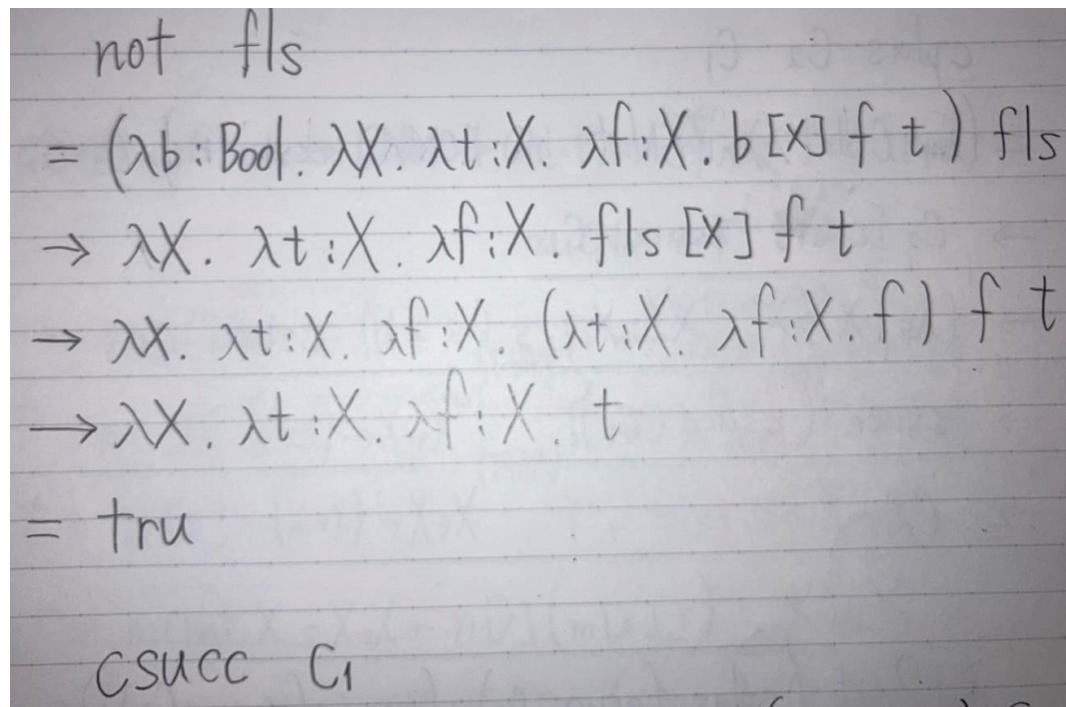 not fls
= (λb:Bool. λX. λt:X. λf:X. b [X] f t) fls
→ λX. λt:X. λf:X. fls [X] f t
→ λX. λt:X. λf:X. (λt:X. λf:X. f) f t
→ λX. λt:X. λf:X. t
= tru
csucc C₁